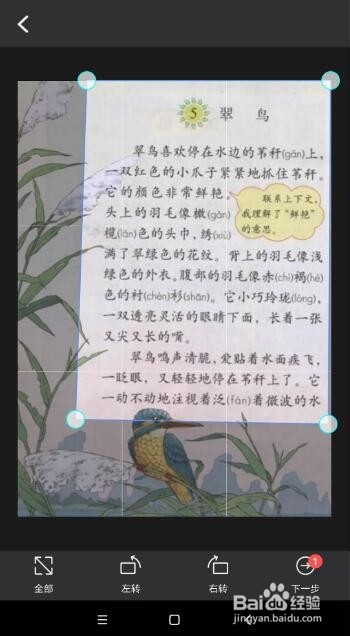 5 翠 鸟
翠鸟喜欢停在水边的苇秆(gǎn)上,
一双红色的小爪子紧紧地抓住苇秆。
它的颜色非常鲜艳。
联系上下文,
我理解了“鲜艳”
的意思。
头上的羽毛像橄(gǎn)
榄(lǎn)色的头巾,绣(xiù)
满了翠绿色的花纹。背上的羽毛像浅
绿色的外衣。腹部的羽毛像赤(chì)褐(hè)
色的衬(chèn)衫(shān)。它小巧玲珑(lóng),
一双透亮灵活的眼睛下面,长着一张
又尖又长的嘴。
翠鸟鸣声清脆,爱贴着水面疾飞,
一眨眼,又轻轻地停在苇秆上了。它
一动不动地注视着泛(fàn)着微波的水
全部
左转
右转
1
下一步
Baidu 经验
jingyan.baidu.com